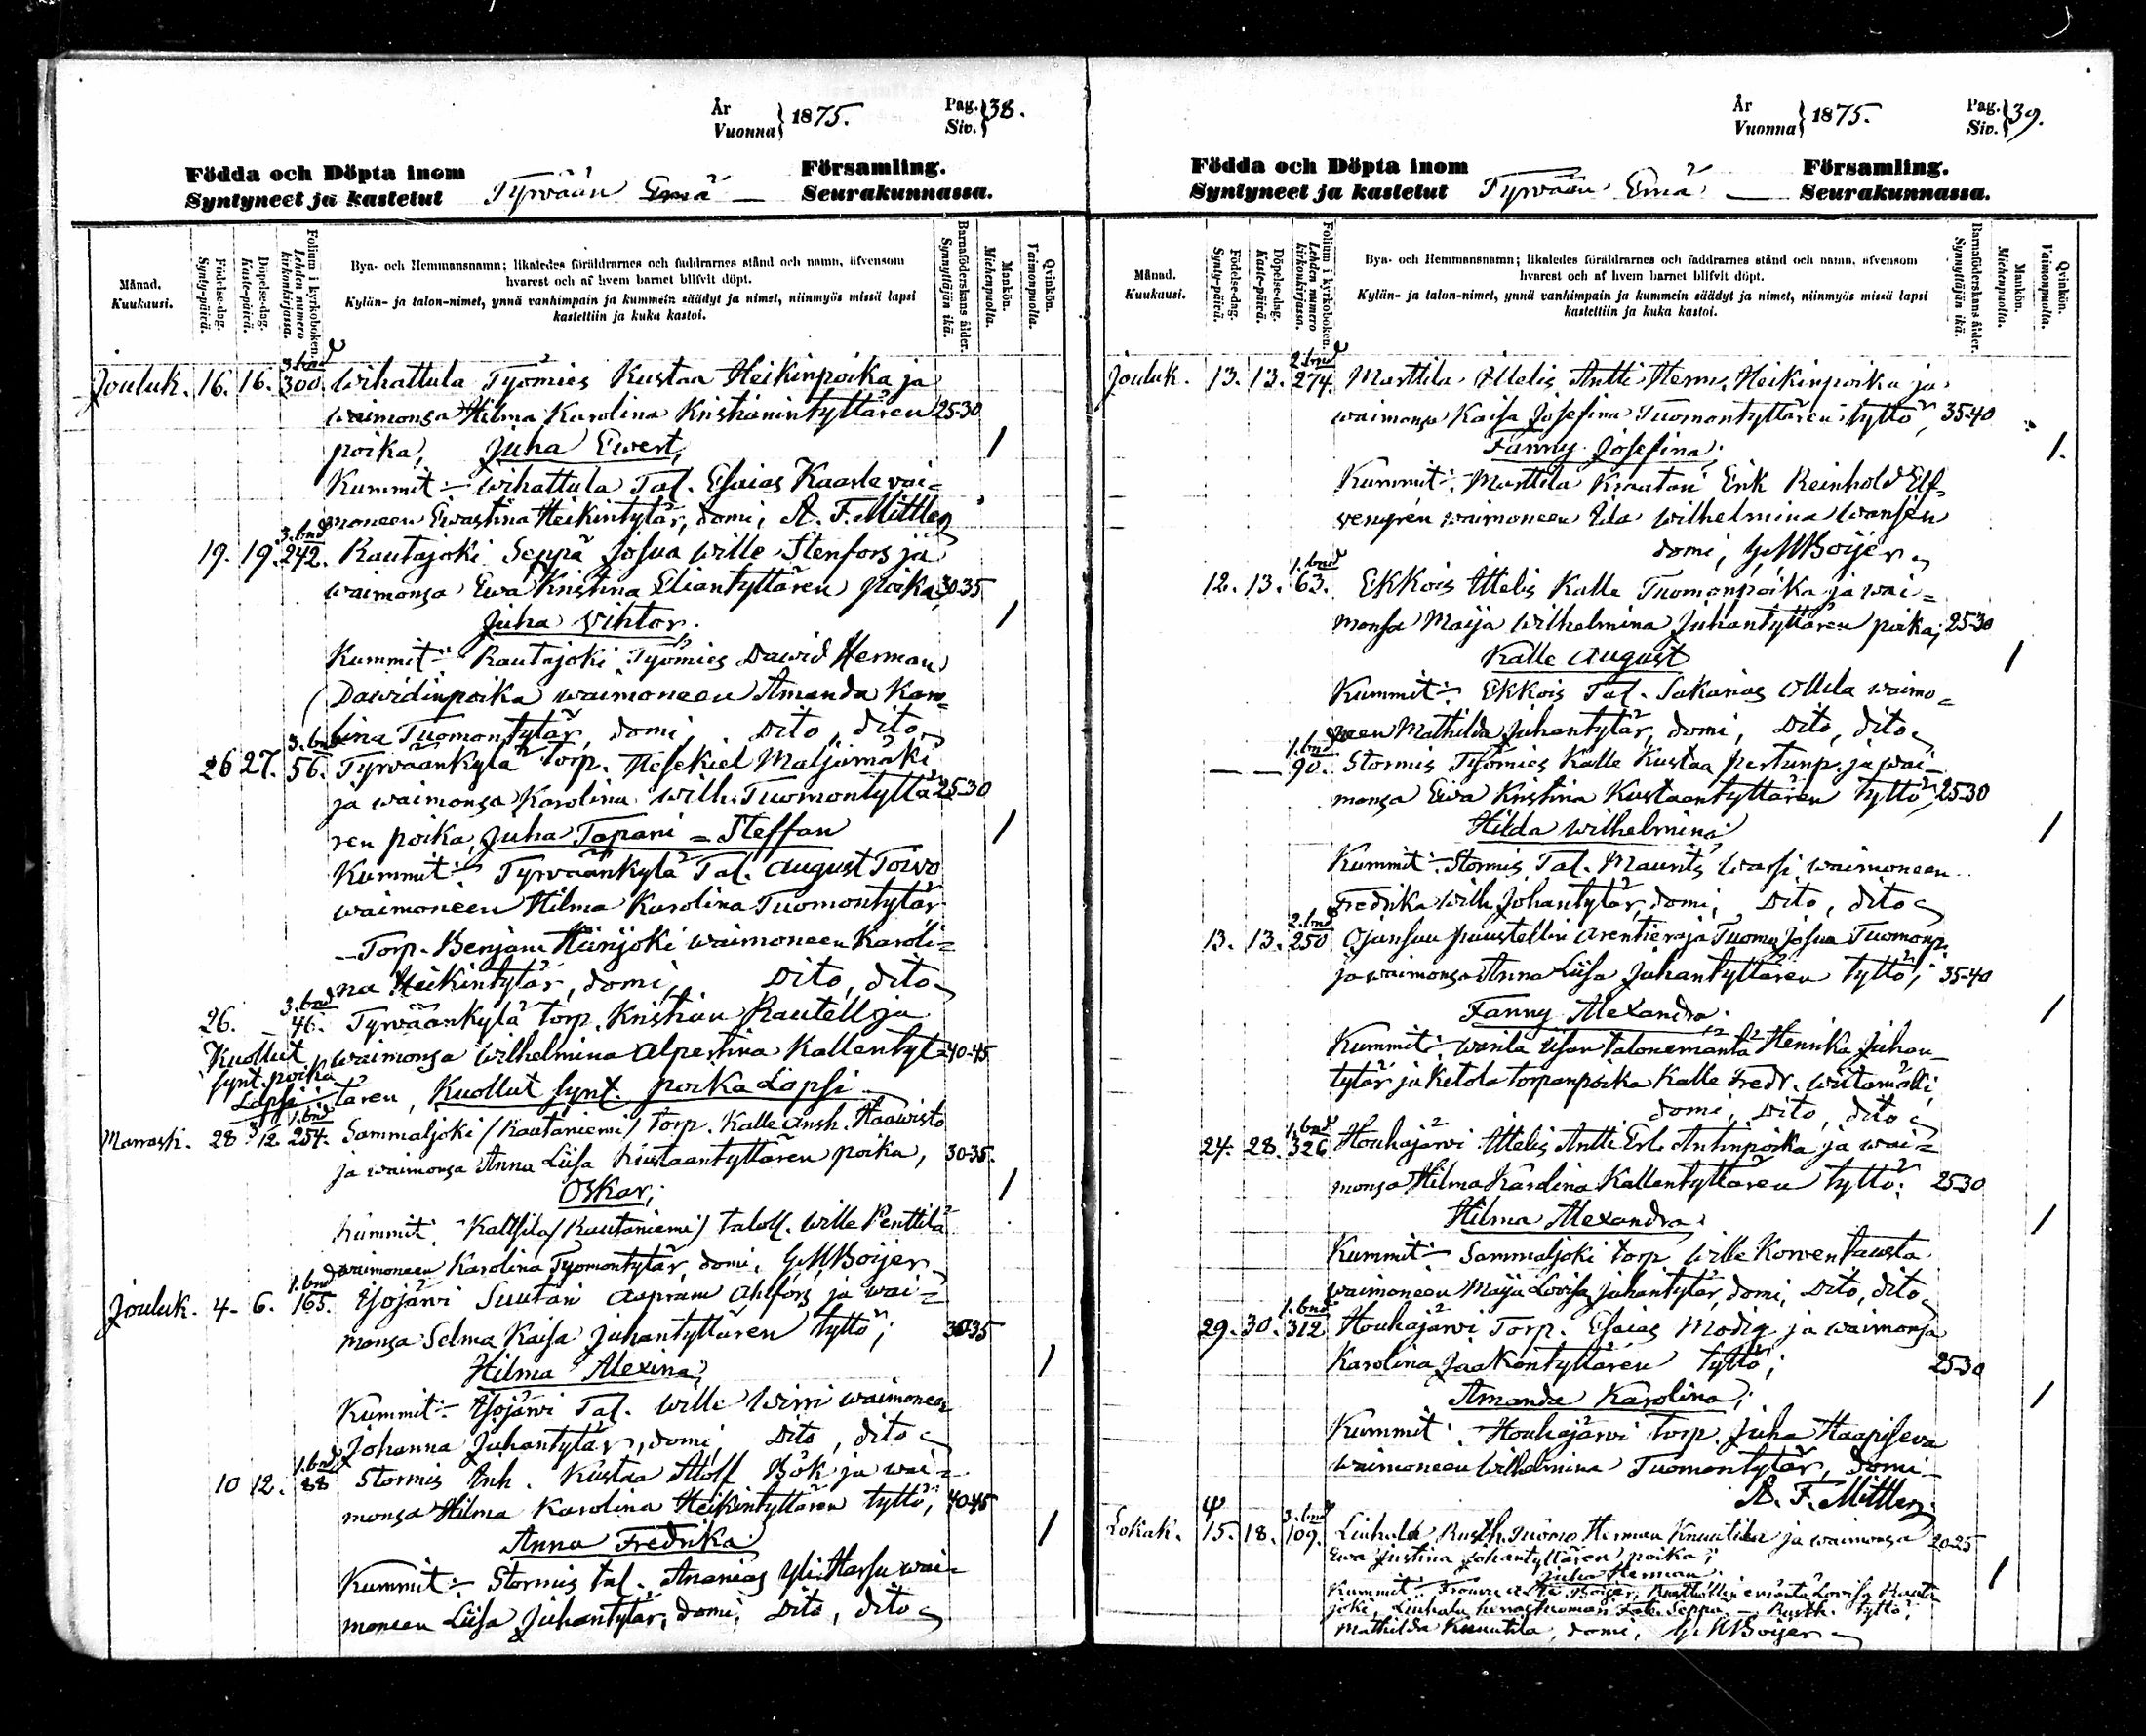 År
Vuonna } 1875.
Pag.
Siv. } 38.
Födda och Döpta inom
Syntyneet ja kastetut
Tyrvään Emä —
Församling.
Seurakunnassa.
Månad.
Kuukausi.
Födelse-dag.
Synty-päivä.
Döpelse-dag.
Kaste-päivä.
Folium i kyrkoboken.
Lehden numero kirkonkirjassa.
Bya- och Hemmansnamn; likaledes föräldrarnes och faddrarnes stånd och namn, äfvensom
hvarest och af hvem barnet blifvit döpt.
Kylän- ja talon-nimet, ynnä vanhimpain ja kummein säädyt ja nimet, niinmyös missä lapsi
kastettiin ja kuka kastoi.
Barnaföderskans ålder.
Synnyttäjän ikä.
Mankön.
Miehenpuolta.
Qvinkön.
Vaimonpuolta.
3. bnd
Jouluk. 16. 16. 300. Wihattula Työmies Kustaa Heikinpoika ja
waimonsa Hilma Karolina Kristianintyttären 25-30
poika, Juha Ewert, 1
Kummit:- Wihattula Tal. Esaias Kaarle vai=
moneen Ewastina Heikintytär, domi, A. F. Mittler
3. bnd
19. 19. 242. Rautajoki Seppä Josua Wille Stenfors ja
waimonsa Ewa Kristina Eliantyttären poika, 30-35
Juha Wihtor. 1
Kummit:- Rautajoki Työmies Dawid Herman
Dawidinpoika waimoneen Amanda Karo=
lina Tuomontytär, domi, Dito, dito
3. bnd
26 27. 56. Tyrväänkylä Torp. Hesekiel Maljamäki
ja waimonsa Karolina Wilh. Tuomontyttä 25-30
ren poika, Juha Tapani = Steffan 1
Kummit:- Tyrväänkylä Tal. August Toivo
waimoneen Hilma Karolina Tuomontytär
— Torp. Benjam Hiirijoki waimoneen Karoli=
na Heikintytär, domi, Dito, dito
3. bnd
26. 46. Tyrväänkylä torp. Kristian Rautell ja
Kuollut waimonsa Wilhelmina Alpertina Kallentyt= 40-45
synt. poika
Lapsi tären, Kuollut synt. poika Lapsi
1. bnd
Marrask. 28 5/12 254. Sammaljoki (Rautaniemi) torp. Kalle Ansh. Haawisto
ja waimonsa Anna Liisa Kustaantyttären poika, 30-35.
Oskar; 1
Kummit:- Kaltsila (Rautaniemi) taloll. Wille Penttilä
waimoneen Karolina Tuomontytär, domi, G. M Boijer
1. bnd
Jouluk. 4- 6. 165. Illojärvi Suutari Aapram Ahlfors ja wai=
monsa Selma Kaisa Juhantyttären tyttö; 30-35
Hilma Alexina; 1
Kummit:- Illojärvi Tal. Wille Wirri waimoneen
Johanna Juhantytär, domi, Dito, dito
1. bnd
10 12. 88 Stormis Inh. Kustaa Adolf Bök ja wai=
monsa Hilma Karolina Heikintyttären tyttö, 40-45
Anna Fredrika 1
Kummit:- Stormis tal. Ananias Yli-Harsu wai=
moneen Liisa Juhantytär, domi, Dito, dito
År
Vuonna } 1875.
Pag.
Siv. } 39.
Födda och Döpta inom
Syntyneet ja kastetut
Tyrvään Emä —
Församling.
Seurakunnassa.
Månad.
Kuukausi.
Födelse-dag.
Synty-päivä.
Döpelse-dag.
Kaste-päivä.
Folium i kyrkoboken.
Lehden numero kirkonkirjassa.
Bya- och Hemmansnamn; likaledes föräldrarnes och faddrarnes stånd och namn, äfvensom
hvarest och af hvem barnet blifvit döpt.
Kylän- ja talon-nimet, ynnä vanhimpain ja kummein säädyt ja nimet, niinmyös missä lapsi
kastettiin ja kuka kastoi.
Barnaföderskans ålder.
Synnyttäjän ikä.
Mankön.
Miehenpuolta.
Qvinkön.
Vaimonpuolta.
2. bnd
Jouluk. 13. 13. 274. Marttila Ittelis Antti Herm. Heikinpoika ja
waimonsa Kaisa Josefina Tuomontyttären tyttö, 35-40
Fanny Josefina; 1.
Kummit:- Marttila Kraatari Erik Reinhold Elf=
vengrén waimoneen Ida Wilhelmina Wansén
domi, G. M Boijer
1. bnd
12. 13. 63. Ekkois Ittelis Kalle Tuomonpoika ja wai=
monsa Maija Wilhelmina Juhantyttären poika; 25-30
Kalle August 1
Kummit:- Ekkois Tal. Sakarias Ollila waimo=
neen Mathilda Juhantytär, domi, Dito, dito
1. bnd
— — 90. Stormis Työmies Kalle Kustaa Perttunp. ja wai=
monsa Ewa Kristina Kustaantyttären tyttö, 25-30
Hilda Wilhelmina 1
Kummit:- Stormis Tal. Maurits Warsi waimoneen
Fredrika Wilh. Johantytär, domi, Dito, dito
2. bnd
13. 13. 250 Ojansuu puustellin arentieraja Tuomo Josua Tuomonp.
ja waimonsa Anna Liisa Juhantyttären tyttö; 35-40
Fanny Alexandra. 1
Kummit:- talonemäntä Henrika Juhan=
tytär ja Ketola torpanpoika Kalle Fredr. Wiitamäki,
domi, Dito, dito
1. bnd
24. 28. 326 Houhajärvi Ittelis Antti Erl. Antinpoika ja wai=
monsa Hilma Karolina Kallentyttären tyttö; 25-30
Hilma Alexandra; 1
Kummit:- Sammaljoki torp Wille Korwentausta
waimoneen Maija Lovisa Juhantytär, domi, Dito, dito
1. bnd
29. 30. 312 Houhajärvi Torp. Esaias Modig ja waimonsa
Karolina Jaakontyttären tyttö; 25-30
Amanda Karolina; 1
Kummit:- Houhajärvi torp. Juha Haapiseva
waimoneen Wilhelmina Tuomontytär, domi
A. F. Mittler
3. bnd
Lokak. 15. 18. 109. Liuhala Rusth. Tuomo Herman Knuutila ja waimonsa 20-25
Ewa Justina Johantyttären poika;
Juha Herman. 1
Kummit:- Frouva Boijer, Rusthollin emäntä Lovisa Rauta
joki, Liuhala Seppä — Rusth. tyttö;
Mathilda Knuutila, domi, G. M Boijer